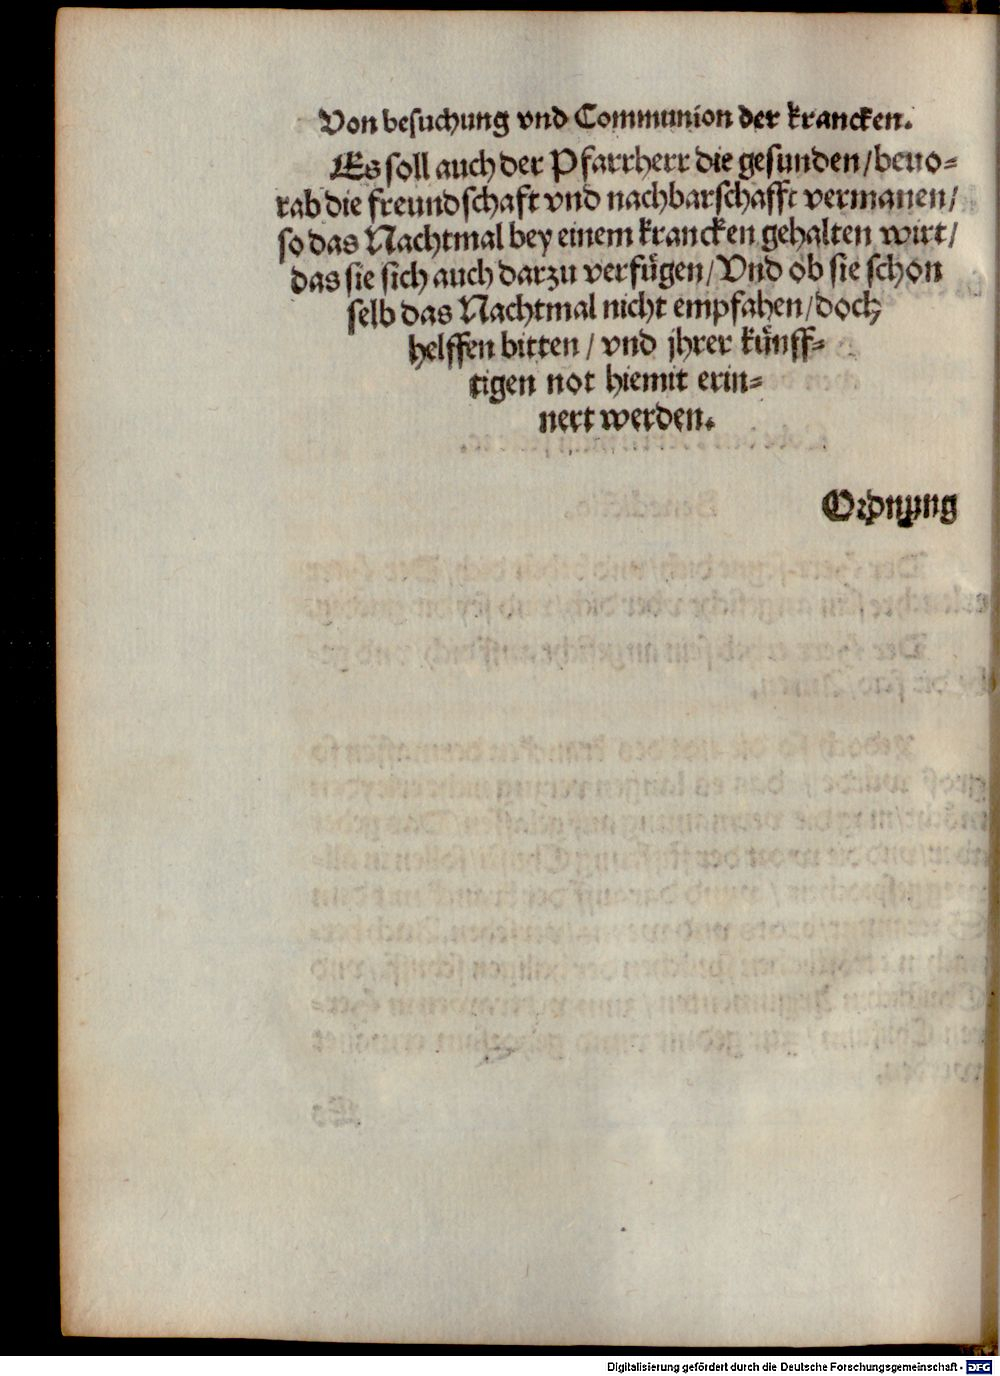 Von besuchung vnd Communion der krancken.
Es soll auch der Pfarrherr die gesunden/beuo⸗
rab die freundschaft vnd nachbarschafft vermanen/
so das Nachtmal bey einem krancken gehalten wirt/
das sie sich auch darzu verfügen/Vnd ob sie schon
selb das Nachtmal nicht empfahen/doch
helffen bitten/ vnd jhrer künff⸗
tigen not hiemit erin⸗
nert werden.
Ordnung
Digitalisierung gefördert durch die Deutsche Forschungsgemeinschaft - DFG